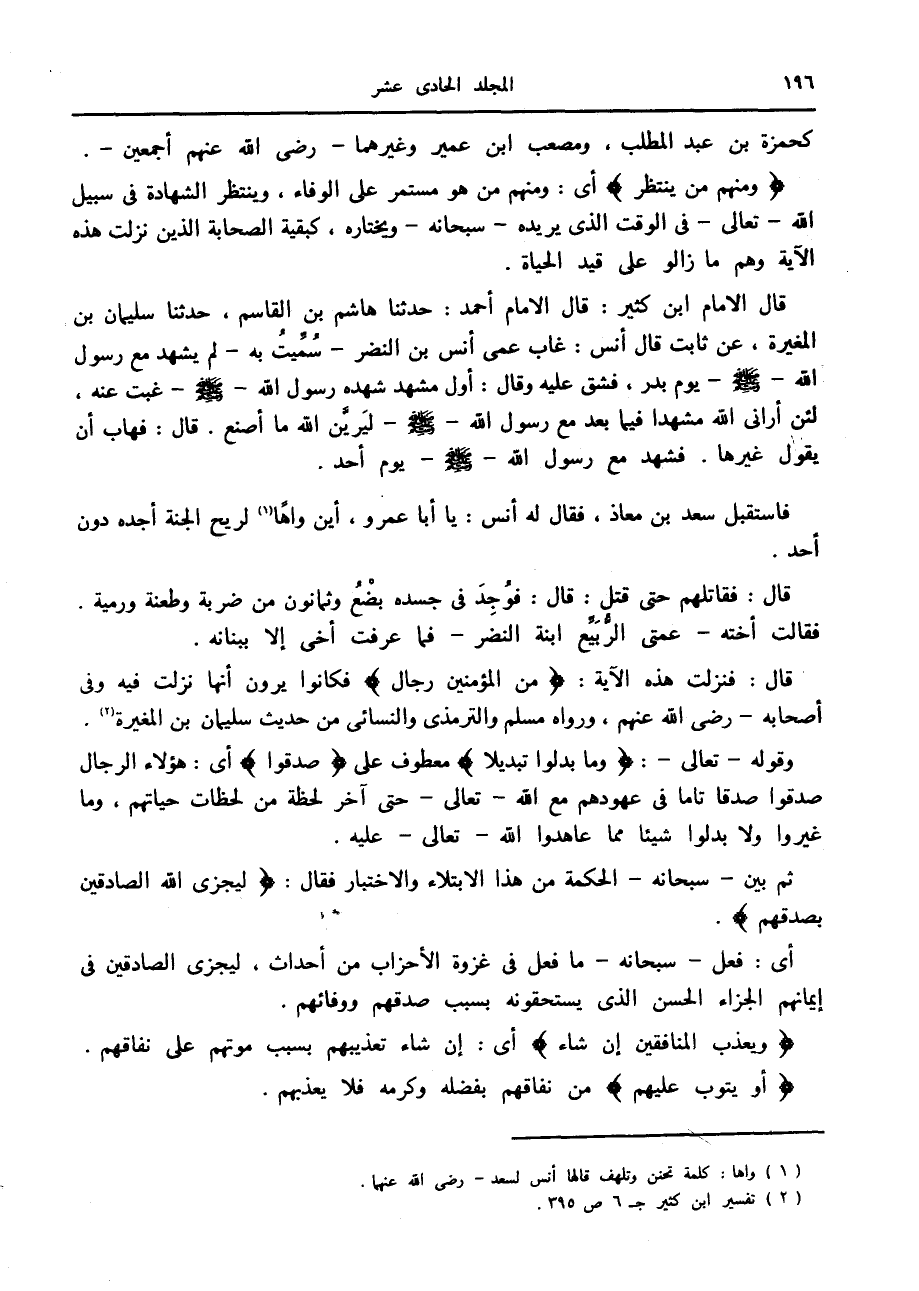 ١٩٦ المجلد الحادى عشر
كحمزة بن عبد المطلب ، ومصعب ابن عمير وغيرهما – رضى الله عنهم أجمعين – .
﴿ ومنهم من ينتظر ﴾ أى : ومنهم من هو مستمر على الوفاء ، وينتظر الشهادة فى سبيل
الله – تعالى – فى الوقت الذى يريده – سبحانه – ويختاره ، كبقية الصحابة الذين نزلت هذه
الآية وهم ما زالو على قيد الحياة .
قال الامام ابن كثير : قال الامام أحمد : حدثنا هاشم بن القاسم ، حدثنا سليمان بن
المغيرة ، عن ثابت قال أنس : غاب عمى أنس بن النضر – سُمِّيتُ به – لم يشهد مع رسول
الله – ﷺ – يوم بدر ، فشق عليه وقال : أول مشهد شهده رسول الله – ﷺ – غبت عنه ،
لئن أرانى الله مشهدا فيما بعد مع رسول الله – ﷺ – لَيَرَيَّن الله ما أصنع . قال : فهاب أن
يقول غيرها . فشهد مع رسول الله – ﷺ – يوم أحد .
فاستقبل سعد بن معاذ ، فقال له أنس : يا أبا عمرو ، أين واهًا(١) لريح الجنة أجده دون
أحد .
قال : فقاتلهم حتى قتل : قال : فوُجِدَ فى جسده بضْعُ وثمانون من ضربة وطعنة ورمية .
فقالت أخته – عمتى الرُّبَيِّع ابنة النضر – فما عرفت أخى إلا ببنانه .
قال : فنزلت هذه الآية : ﴿ من المؤمنين رجال ﴾ فكانوا يرون أنها نزلت فيه وفى
أصحابه – رضى الله عنهم ، ورواه مسلم والترمذى والنسائى من حديث سليمان بن المغيرة(٢) .
وقوله – تعالى – : ﴿ وما بدلوا تبديلا ﴾ معطوف على ﴿ صدقوا ﴾ أى : هؤلاء الرجال
صدقوا صدقا تاما فى عهودهم مع الله – تعالى – حتى آخر لحظة من لحظات حياتهم ، وما
غيروا ولا بدلوا شيئا مما عاهدوا الله – تعالى – عليه .
ثم بين – سبحانه – الحكمة من هذا الابتلاء والاختبار فقال : ﴿ ليجزى الله الصادقين
بصدقهم ﴾ .
أى : فعل – سبحانه – ما فعل فى غزوة الأحزاب من أحداث ، ليجزى الصادقين فى
إيمانهم الجزاء الحسن الذى يستحقونه بسبب صدقهم ووفائهم .
﴿ ويعذب المنافقين إن شاء ﴾ أى : إن شاء تعذيبهم بسبب موتهم على نفاقهم .
﴿ أو يتوب عليهم ﴾ من نفاقهم بفضله وكرمه فلا يعذبهم .
( ١ ) واها : كلمة تحنن وتلهف قالها أنس لسعد – رضى الله عنهما .
( ٢ ) تفسير ابن كثير جـ ٦ ص ٣٩٥ .